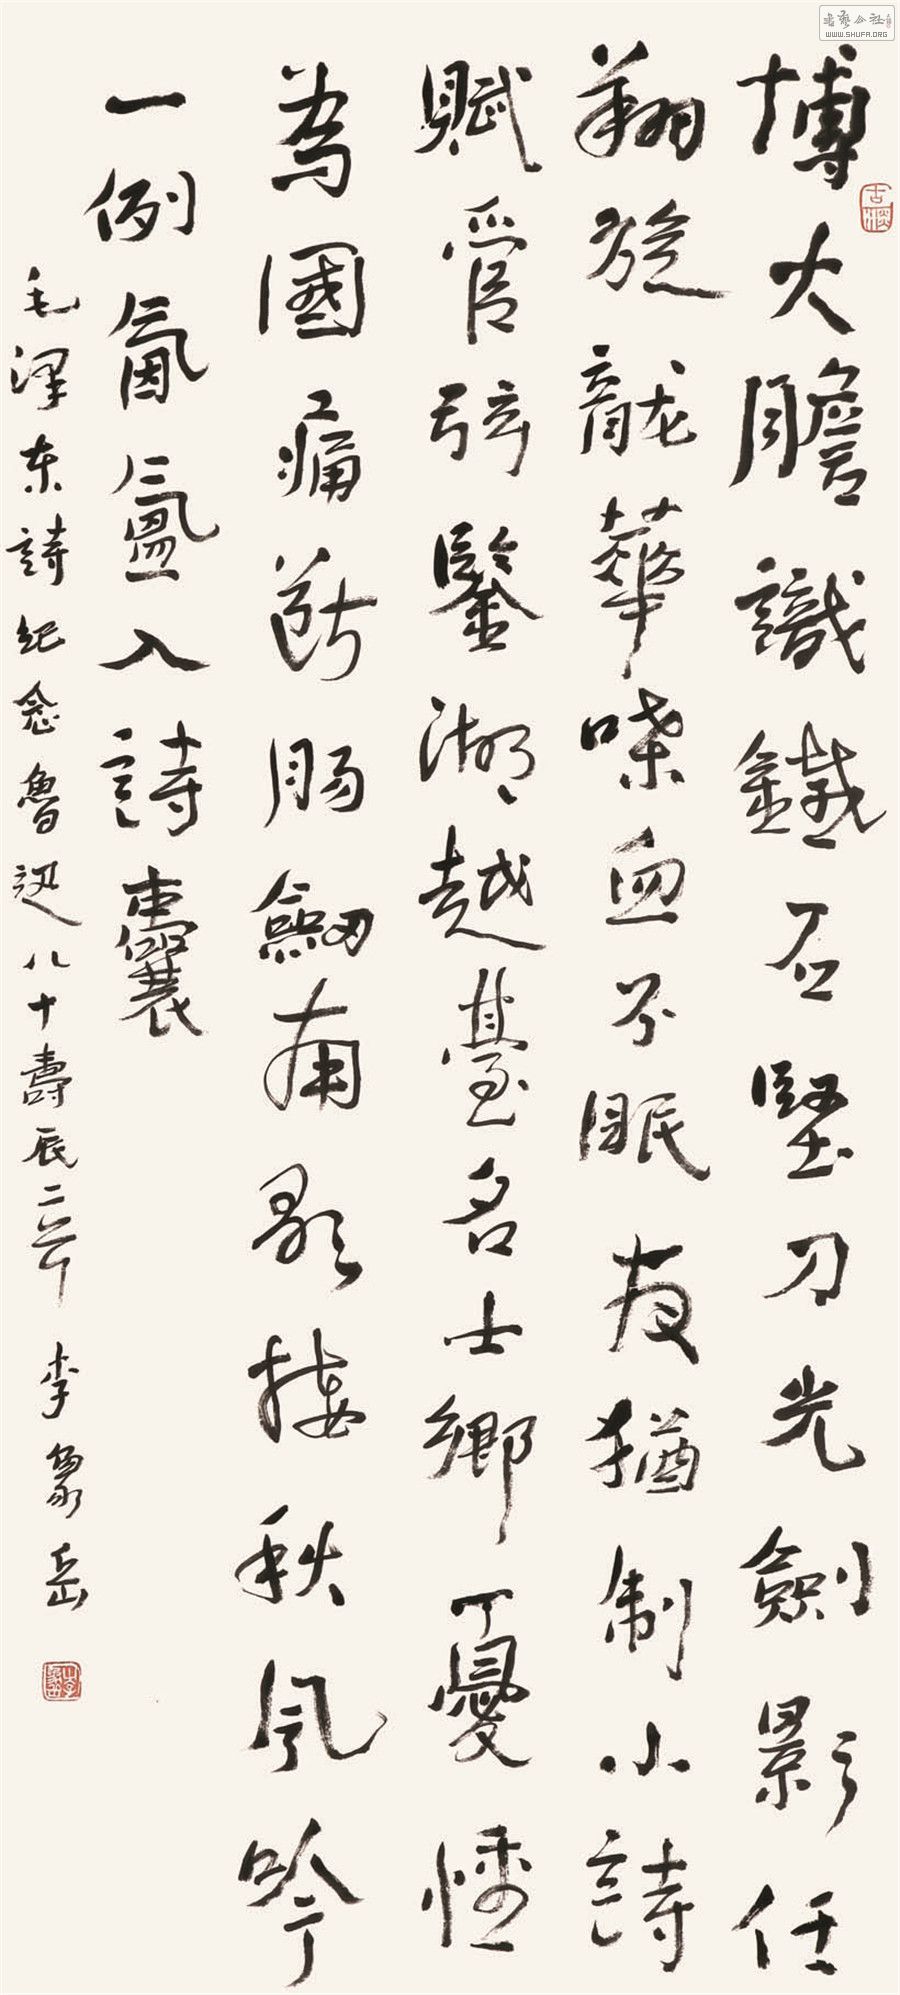 博大膽識鐵石堅刀光劍影任
翔旋龍華喋血不眠夜猶制小詩
賦管弦鑒湖越臺名士鄉憂忡
為國痛斷腸劒南歌接秋風吟
一例氤氳入詩囊
毛澤東詩紀念魯迅八十壽辰二首 李象岳
WWW.SHUFA.ORG